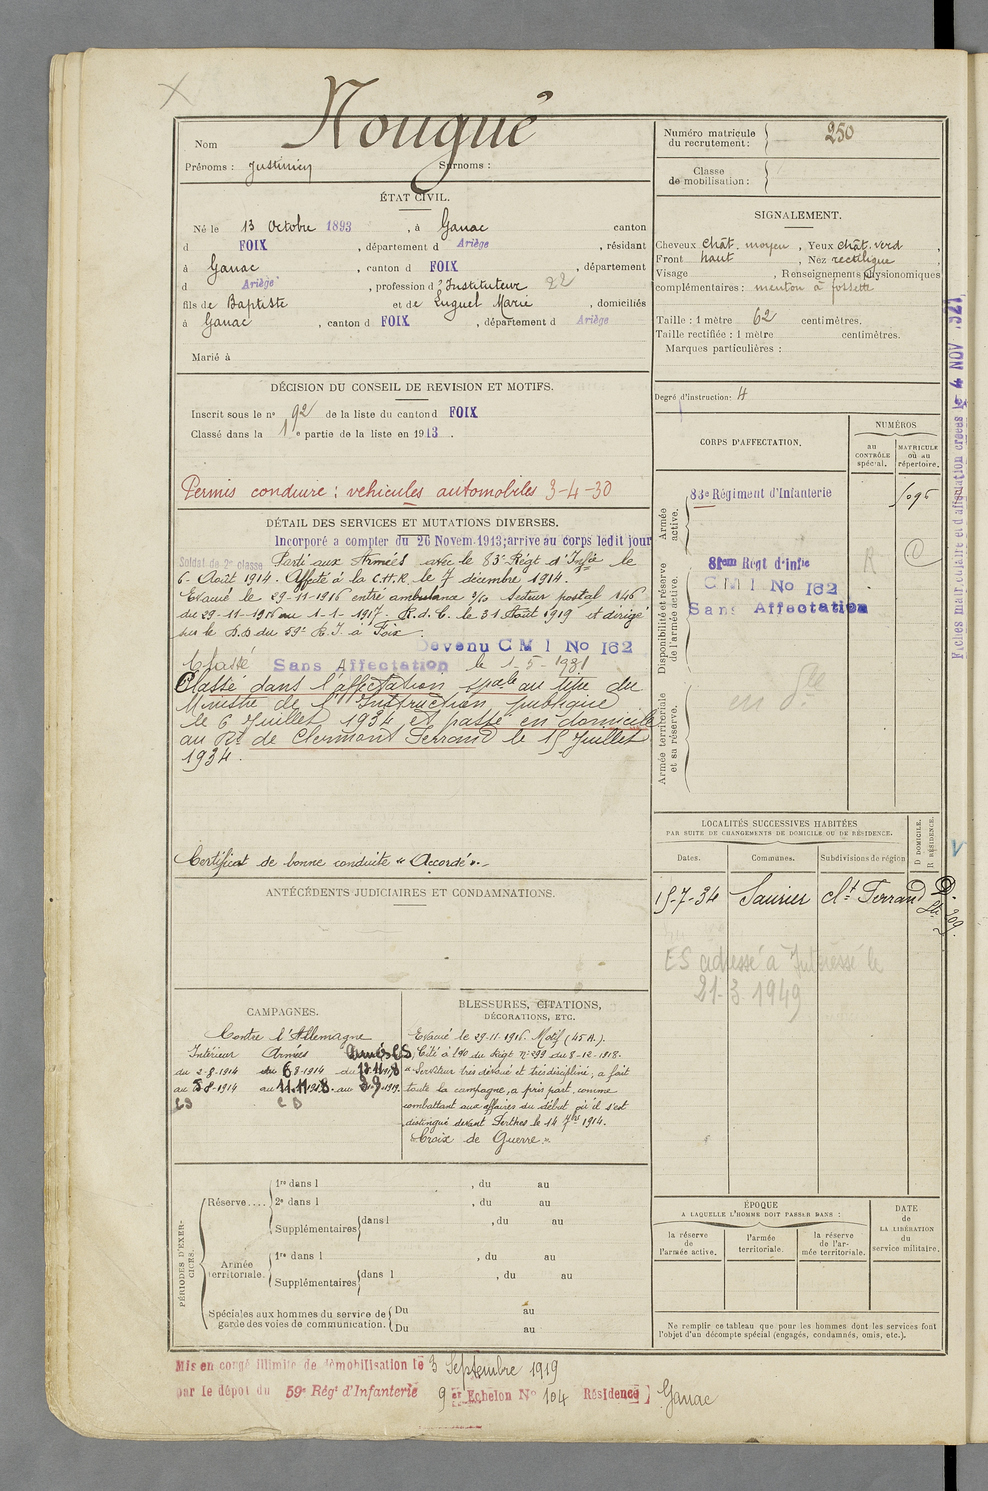 Nougué
Nom
Prénoms : Justinien Surnoms :
ÉTAT CIVIL.
Né le 13 Octobre 1893 , à Ganac canton
d FOIX , département d Ariège , résidant
à Ganac , canton d FOIX , département
d Ariège , profession d'Instituteur 22
fils de Baptiste et de Luguel Marie , domiciliés
à Ganac , canton d FOIX , département d Ariège
Marié à
DÉCISION DU CONSEIL DE REVISION ET MOTIFS.
Inscrit sous le no 92 de la liste du canton d FOIX
Classé dans la 1e partie de la liste en 1913 .
Permis conduire : vehicules automobiles 3-4-30
DÉTAIL DES SERVICES ET MUTATIONS DIVERSES.
Incorporé a compter du 26 Novem. 1913; arrivé au corps ledit jour
Soldat de 2e classe Parti aux Armées avec le 83e Régt d'Infie le
6 Août 1914. Affecté à la C.H.R. le 7 décembre 1914.
Evacué le 29-11-1916 entré ambulance 3/10 Secteur postal 146
du 29-11-1916 au 1-1-1917. R.d.C. le 31 Août 1919 et dirigé
sur le D.D du 59e R.I. à Foix.
Devenu C M I No 162
Classé Sans Affectation le 1-5-1931
Classé dans l'affectation spale au titre du
Ministre de l'Instruction publique
le 6 Juillet 1934 et passé en domicile
au Rt de Clermont Ferrand le 15 Juillet
1934.
Certificat de bonne conduite "Accordé".-
ANTÉCÉDENTS JUDICIAIRES ET CONDAMNATIONS.
CAMPAGNES.
Contre l'Allemagne
Intérieur Armées Armées CS
du 2-8-1914 du 6 8-1914 du 12.11.1918
au 5-8-1914 au 11.11.1918. au 2.9.1919.
CS CD
BLESSURES, CITATIONS,
DÉCORATIONS, ETC.
Evacué le 29.11.1916. Motif (45 A.).
Cité à l'ao du Régt no 299 du 8-12-1918.
"Serviteur très dévoué et très discipliné, a fait
toute la campagne, a pris part, comme
combattant aux affaires du début où il s'est
distingué devant Perthes le 14 7bre 1914.
"Croix de Guerre".
PÉRIODES D'EXERCICES.
Réserve.... 1re dans l , du au
2e dans l , du au
Supplémentaires dans l , du au
Armée territoriale. 1re dans l , du au
Supplémentaires dans l , du au
Spéciales aux hommes du service de garde des voies de communication. Du au
Du au
Mis en congé illimité de démobilisation le 3 Septembre 1919
par le dépôt du 59e Régt d'Infanterie 9 er Echelon No 104 Résidence Ganac
Numéro matricule du recrutement : 250
Classe de mobilisation :
SIGNALEMENT.
Cheveux chât. moyen , Yeux chât. verd ,
Front haut , Nez rectiligne ,
Visage , Renseignements physionomiques
complémentaires : menton à fossette
Taille : 1 mètre 62 centimètres.
Taille rectifiée : 1 mètre centimètres.
Marques particulières :
Degré d'instruction: 4
CORPS D'AFFECTATION.
NUMÉROS
au CONTRÔLE spécial.
MATRICULE ou au répertoire.
Armée active.
83e Régiment d'Infanterie
Disponibilité et réserve de l'armée active.
81em Régt d'infie
C M I No 162
Sans Affectation
R
C
Armée territoriale et sa réserve.
LOCALITÉS SUCCESSIVES HABITÉES
PAR SUITE DE CHANGEMENTS DE DOMICILE OU DE RÉSIDENCE.
Dates. Communes. Subdivisions de région
D DOMICILE. R RÉSIDENCE.
15-7-34 Saurier Clt Ferrand D.
ES adressé à Intéressé le
21-3 1949
ÉPOQUE
A LAQUELLE L'HOMME DOIT PASSER DANS :
la réserve de l'armée active.
l'armée territoriale.
la réserve de l'armée territoriale.
DATE de LA LIBÉRATION du service militaire.
Ne remplir ce tableau que pour les hommes dont les services font
l'objet d'un décompte spécial (engagés, condamnés, omis, etc.).
Fiches matriculaire et d'affectation créées le 4 NOV 1921